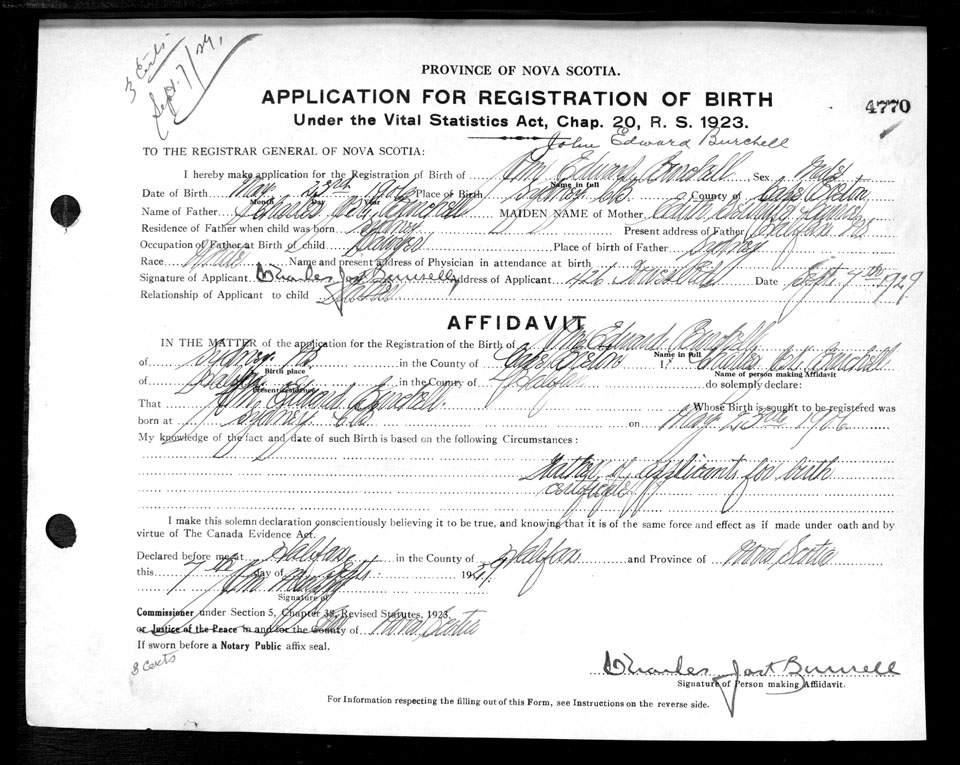 3 Certs
Sept. 7/29.
PROVINCE OF NOVA SCOTIA.
APPLICATION FOR REGISTRATION OF BIRTH
4770
Under the Vital Statistics Act, Chap. 20, R. S. 1923.
John Edward Burchell
TO THE REGISTRAR GENERAL OF NOVA SCOTIA:
I hereby make application for the Registration of Birth of John Edward Burchell Sex Male
Name in full
Date of Birth May 23rd 1906 Place of Birth Sydney C.B. County of Cape Breton
Month Day Year
Name of Father Charles Jost Burchell MAIDEN NAME of Mother
Residence of Father when child was born Sydney Present address of Father Halifax NS
Occupation of Father at Birth of child Lawyer Place of birth of Father Sydney
Race White Name and present address of Physician in attendance at birth
Signature of Applicant Charles Jost Burchell Address of Applicant 426 Date Sept 7th 1929
Relationship of Applicant to child Father
AFFIDAVIT
IN THE MATTER of the application for the Registration of the Birth of John Edward Burchell
Name in full
of Sydney NS in the County of Cape Breton I, Charles Jost Burchell
Birth place Name of person making Affidavit
of Halifax in the County of Halifax do solemnly declare:
Present residence
That John Edward Burchell Whose Birth is sought to be registered was
born at Sydney C.B. on May 23rd 1906
My knowledge of the fact and date of such Birth is based on the following Circumstances:
Father of applicant for birth
certificate
I make this solemn declaration conscientiously believing it to be true, and knowing that it is of the same force and effect as if made under oath and by
virtue of The Canada Evidence Act.
Declared before me at Halifax in the County of Halifax and Province of Nova Scotia
this 7th day of Sept 19
Signature of
Commissioner under Section 5, Chapter 38, Revised Statutes, 1923
or Justice of the Peace in and for the County of Nova Scotia
If sworn before a Notary Public affix seal.
3 Certs
Charles Jost Burchell
Signature of Person making Affidavit.
For Information respecting the filling out of this Form, see Instructions on the reverse side.